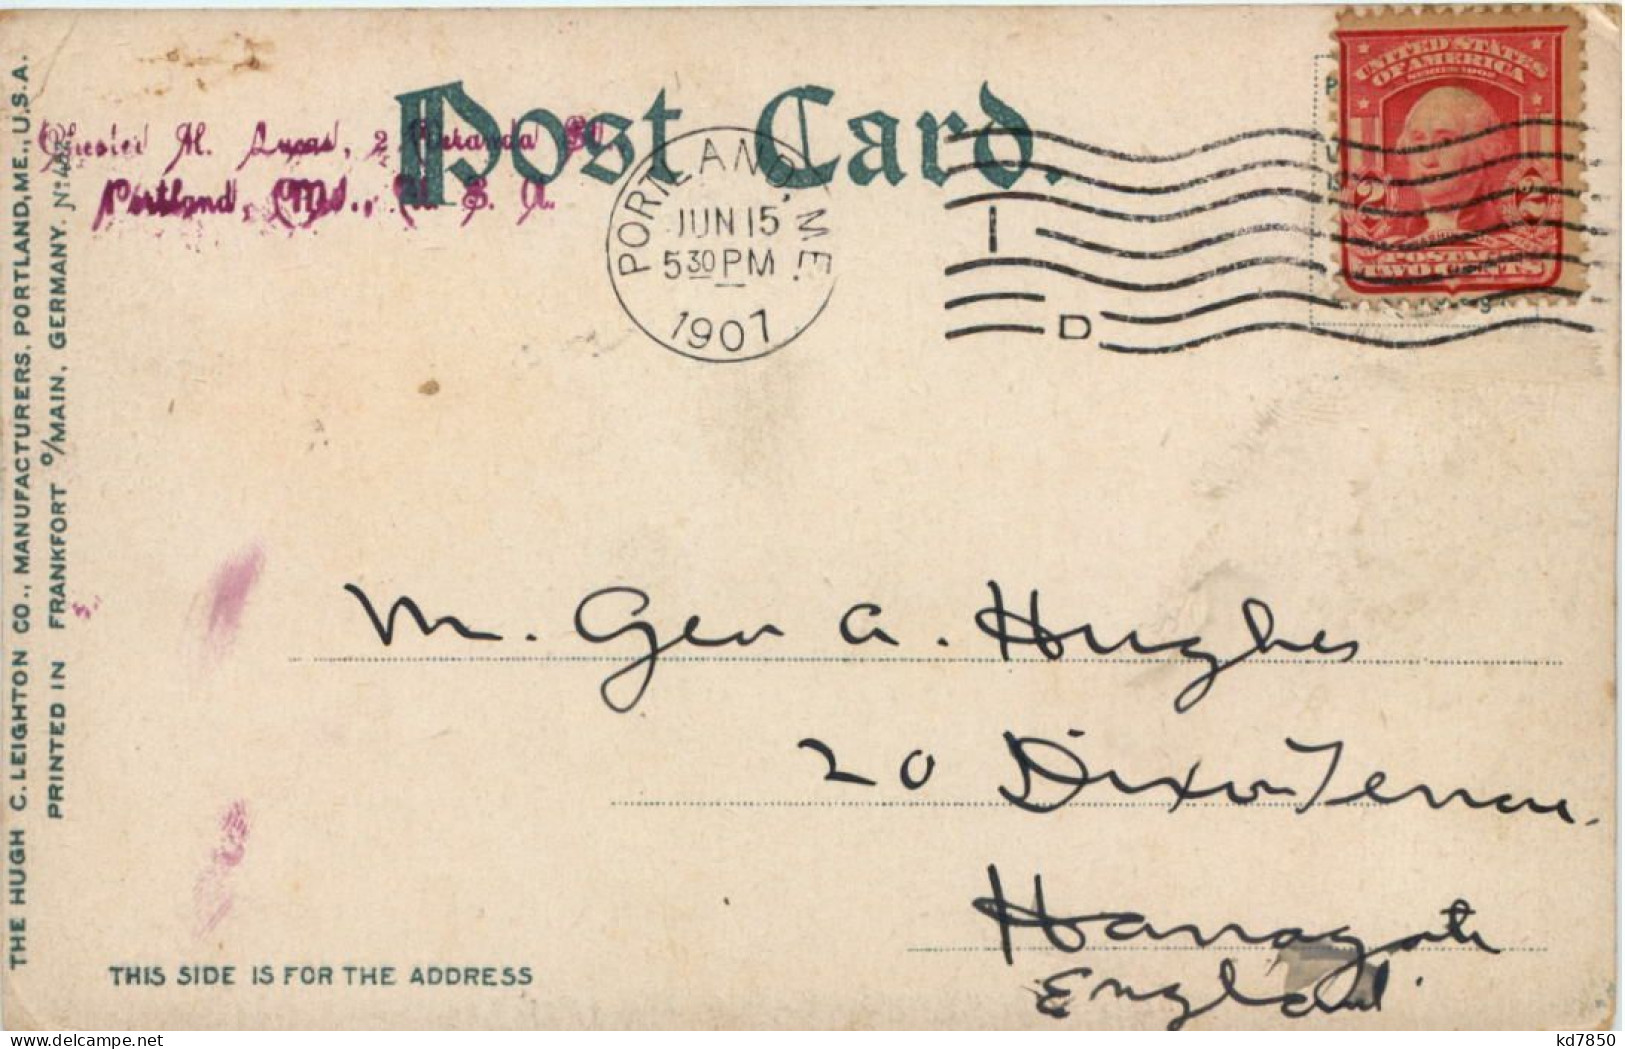 Post Card.
Chester M. Lucas, 2 Veranda St.
Portland, Me., U. S. A.
PORTLAND, ME.
JUN 15
5 30 PM
1907
I
D
UNITED STATES
OF AMERICA
SERIES 1902
2 2
POSTAGE
TWO CENTS
THE HUGH C. LEIGHTON CO., MANUFACTURERS, PORTLAND, ME., U.S.A.
PRINTED IN FRANKFORT o/MAIN, GERMANY.
M. Geo A. Hughes
20 Dixon Terrace.
Harrogate
England.
THIS SIDE IS FOR THE ADDRESS
kd7850